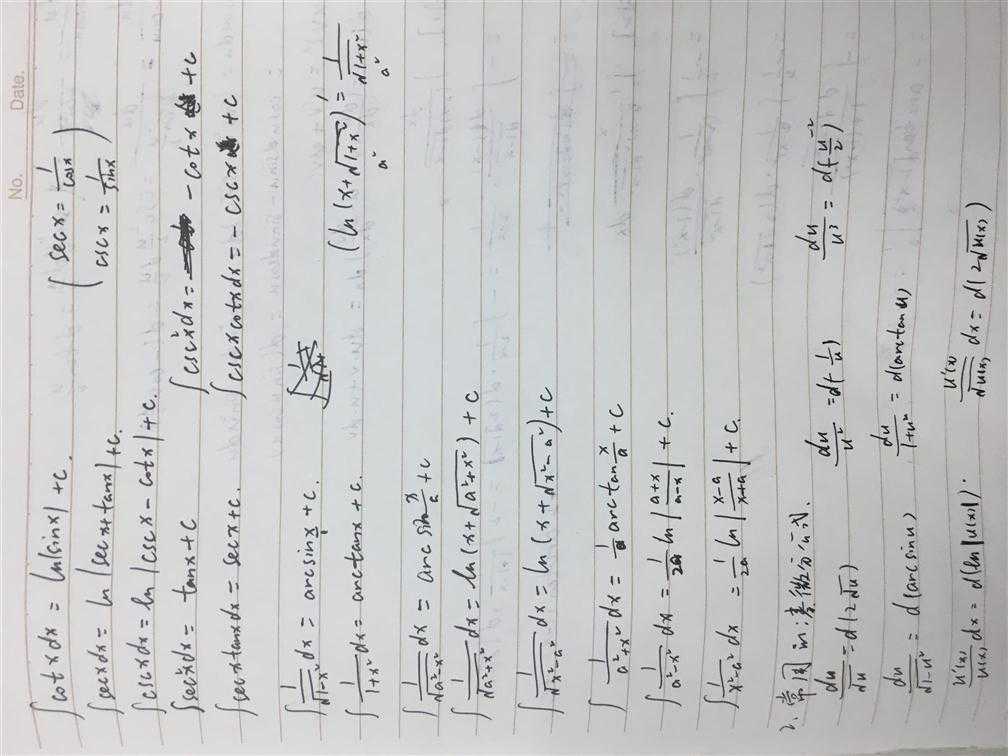 No. Date.
∫cotxdx = ln|sinx| + C.
∫secxdx = ln|secx+tanx| + C. (secx = 1/cosx
∫cscxdx = ln|cscx - cotx| + C. cscx = 1/sinx)
∫sec²xdx = tanx + C ∫csc²xdx = - cotx + C
∫secxtanxdx = secx + C. ∫cscxcotxdx = - cscx + C
∫1/√(1-x²) dx = arcsinx + C.
∫1/(1+x²) dx = arctanx + C. (ln(x+√(1+x²))' = 1/√(1+x²)
a² a²
∫1/√(a²-x²) dx = arcsin x/a + C
∫1/√(a²+x²) dx = ln(x+√(a²+x²)) + C
∫1/√(x²-a²) dx = ln(x+√(x²-a²)) + C
∫1/(a²+x²) dx = 1/a arctan x/a + C
∫1/(a²-x²) dx = 1/2a ln|(a+x)/(a-x)| + C.
∫1/(x²-a²) dx = 1/2a ln|(x-a)/(x+a)| + C.
2. 常用的凑微分公式.
du/√u = d(2√u) du/u² = d(-1/u) du/u³ = d(-u⁻²/2)
du/√(1-u²) = d(arcsinu) du/(1+u²) = d(arctanu).
u'(x)/u(x) dx = d(ln|u(x)|). u'(x)/√u(x) dx = d(2√u(x))